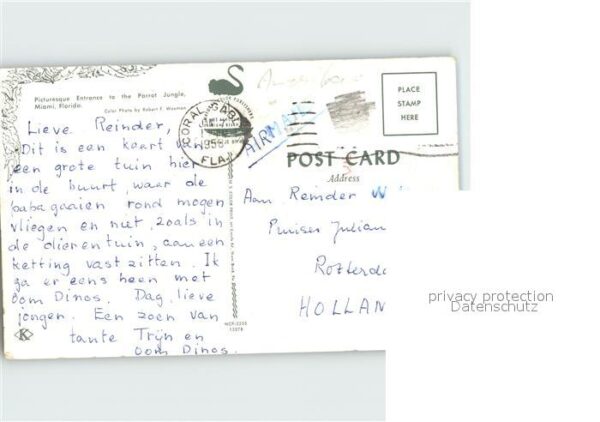 Picturesque Entrance to the Parrot Jungle,
Miami, Florida.
Color Photo by Robert F. Wesman
Lieve Reinder,
Dit is een kaart van
een grote tuin hier
in de buurt, waar de
babagaaien rond mogen
vliegen en niet, zoals in
de dierentuin, aan een
ketting vast zitten. Ik
ga er eens heen met
Oom Dinos. Dag, lieve
jongen. Een zoen van
tante Trijn en
Oom Dinos.
CORAL GABLES
1958
FLA
AIRMAIL
PLACE
STAMP
HERE
POST CARD
Address
Aan Reinder
Prinses Julian
Rotterda
HOLLAN
K
privacy protection
Datenschutz